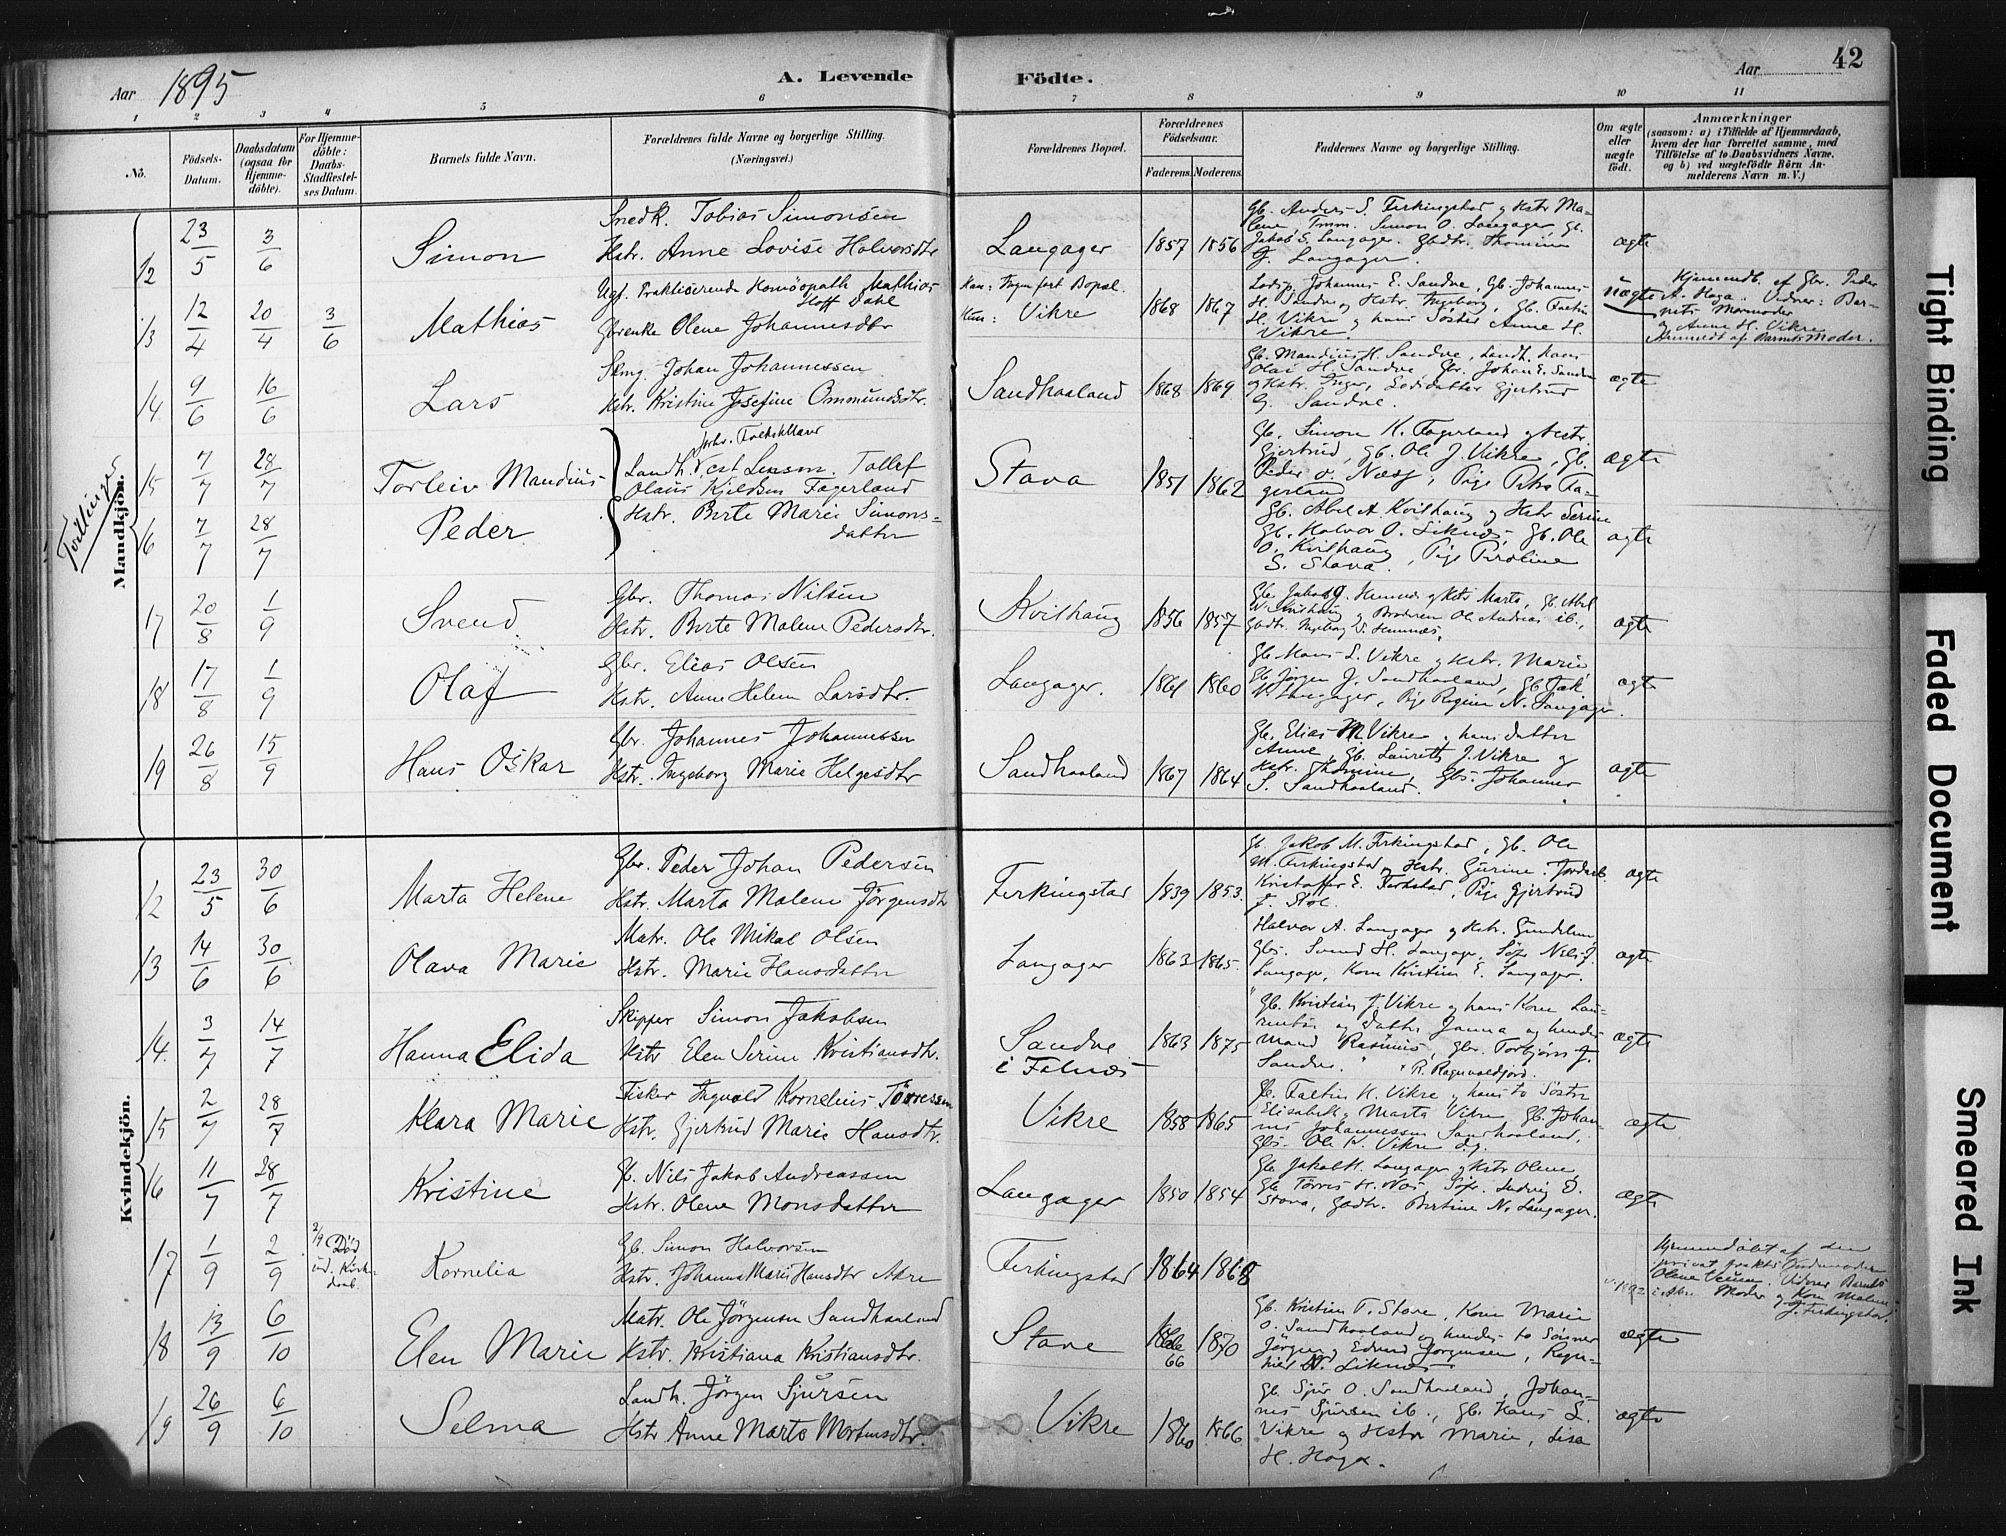 Aar 1895
A. Levende
Födte.
Aar
42
1 2 3 4 5 6 7 8 9 10 11
No.
Födsels-Datum.
Daabsdatum (ogsaa for Hjemmedöbte).
For Hjemmedöbte: Daabs-Stadfestelses Datum.
Barnets fulde Navn.
Forældrenes fulde Navne og borgerlige Stilling. (Næringsvei.)
Forældrenes Bopæl.
Forældrenes Födselsaar.
Faderens. Moderens.
Faddernes Navne og borgerlige Stilling.
Om ægte eller uægte födt.
Anmærkninger
(saasom: a) i Tilfælde af Hjemmedaab, hvem der har forrettet samme, med Tilföielse af to Daabsvidners Navne, og b) ved uægtefödte Börn Anmelderens Navn m. V.)
Mandkjön.
12 23/5 3/6 Simon
Snedk. Tobias Simonsen
Hstr. Anne Lovise Halvorsdtr
Langager 1857 1856
Gb. Anders S. Ferkingstad og Hstr Ma-
lene, Tmm. Simon O. Langager, Gb.
Jakob E. Langager, Gbdtr. Thomine
J. Langager.
ægte
13 12/4 20/4 3/6 Mathias
Ugf. Praktiserende Homöopath Mathias
Hoff Dahl
Gbrenke Olene Johannesdtr
Han: Ingen fast Bopæl.
Hun: Vikre 1868 1867
Lods. Johannes E. Sandve, Gb. Johannes
H. Sandve og Hstr. Ingeborg, Gb. Faltin
H. Vikre og hans Söster Anne H.
Vikre.
uægte
Hjemmedb. af Gbr. Peder
A. Haga. Vidner: Bar-
nets Mormoder
og Anne H. Vikre
Anmeldt af Barnets Moder.
14 9/6 16/6 Lars
Smg. Johan Johannessen
Hstr. Kristine Josefine Ommundsdtr.
Sandhaaland 1868 1869
Gb. Mandius H. Sandve, Landh. Hans
Olai H. Sandve, Gbr. Johan E. Sandve
og Hstr. Inger, Lodsdatter Gjertrud
G. Sandve.
ægte
Tvillinger
15 7/7 28/7 Torleiv Mandius
forhv. Folkeskl.lærer
Landh. Vest Lenson. Tollef
Olaus Kjeldsen Fagerland
Hstr. Berte Marie Simons-
datter
Stava 1851 1862
Gb. Simon K. Fagerland og Hstr.
Gjertrud, Gb. Ole J. Vikre, Gb.
Peder O. Næss, Pige Petra Fa-
gerland
ægte
16 7/7 28/7 Peder
Gb. Abel A Kvilhaug og Hstr Serine
Gb. Halvor O. Liknes, Gb. Ole
O. Kvilhaug, Pige Peroline
S. Stava.
ægte
17 20/8 1/9 Svend
Gbr. Thomas Nilsen
Hstr. Berte Malene Pedersdtr.
Kvilhaug 1856 1857
Gb. Jakob J. Hemnes og Hstr Marta, Gb. Abel
Kvilhaug og Broderen Ole Andreas ib.,
Gbdtr. Ingeborg S. Hemnes.
ægte
18 17/8 1/9 Olaf
Gbr. Elias Olsen
Hstr. Anne Helene Larsdtr.
Langager. 1861 1860
Gb. Hans L. Vikre og Hstr. Marie
Gb. Jörgen J. Sandhaaland, Gb. Jak.
N. Langager, Pige Regine N. Langager.
ægte
19 26/8 15/9 Hans Oskar
Gbr. Johannes Johannessen
Hstr. Ingeborg Marie Helgesdtr
Sandhaaland 1867 1864
Gb. Elias M. Vikre, hans datter
Anne, Gb. Laurits J. Vikre og
Hstr. Thomine, Gbs. Johannes
S. Sandhaaland.
ægte
Kvindekjön.
12 23/5 30/6 Marta Helene
Gbr. Peder Johan Pedersen
Hstr. Marta Malene Jörgensdtr
Ferkingstad 1839 1853.
Gb. Jakob M. Ferkingstad, Gb. Ole
M. Ferkingstad og Hstr. Gurine. Jordmb.
Kristoffer E. Ferkstad, Pige Gjertrud
J. Stöl.
ægte
13 14/6 30/6 Olava Marie
Matr. Ole Mikal Olsen
Hstr. Marie Hansdatter
Langager 1863 1865.
Halvor A. Langager og Hstr. Gundeline
Gbs. Svend H. Langager, Söfr Nils J.
Langager, Kone Kristine E. Langager.
ægte
14. 3/7 14/7 Hanna Elida
Skipper Simon Jakobsen
Hstr Elen Serine Kristiansdtr.
Sandve i Falnes 1863 1875
Gb. Kristian J. Vikre og hans Kone Lau-
rentse og datter Janna og hendes
Mand Rasmus, Gbr. Torbjörn J.
Sandve. R. Ragnvaldjord.
ægte
15 2/7 28/7 Klara Marie
Fisker Ingvald Kornelius Törressen
Hstr. Gjertrud Marie Hansdtr.
Vikre 1858 1865
Gb. Faltin H. Vikre og hans to Söstre
Elisabeth og Marta Vikre, Gb. Johan-
nes Johannessen Sandhaaland,
Gbs. Ole K. Vikre d.y.
ægte
16 11/7 28/7 Kristine
Gb. Nils Jakob Andreassen
Hstr. Olene Monsdatter
Langager 1850 1854
Gb. Jakob H. Langager og Hstr Olene
Gb Törres H. Næs, Söfr. Ludvig S.
Stava, Gbdtr. Bertine N. Langager.
ægte
17 1/9 2/9 2/9 (Död
ud. Kirk-
daab. Kornelia
Gb. Simon Halvorsen
Hstr. Johanna Marie Hansdtr Akre
Ferkingstad 1864 1868
Hjemmedöbt af den
privat prakts. Jordemoder
Olene Veum. Vidner Barnets
Moder og Kone Malene
J. Ferkingstad.
18 13/9 6/10 Elen Marie
Matr. Ole Jörgensen Sandhaaland
Hstr. Kristiana Kristiansdtr.
Stave 66 1870
Gb. Kristian T. Stave, Kone Marie
O. Sandhaaland og hendes to Sönner
Jörgen og Edvard Jörgensen, Regn-
hild N. Liknes
ægte
19 26/9 6/10 Selma
Landh. Jörgen Sjursen
Hstr Anne Marta Mortensdtr.
Vikre 1860 1866
Gb. Sjur O. Sandhaaland, Johan-
nes Sjursen ib., Gb. Hans L.
Vikre og Hstr Marie, Lisa
H. Haga.
ægte
Tight Binding
Faded Document
Smeared Ink